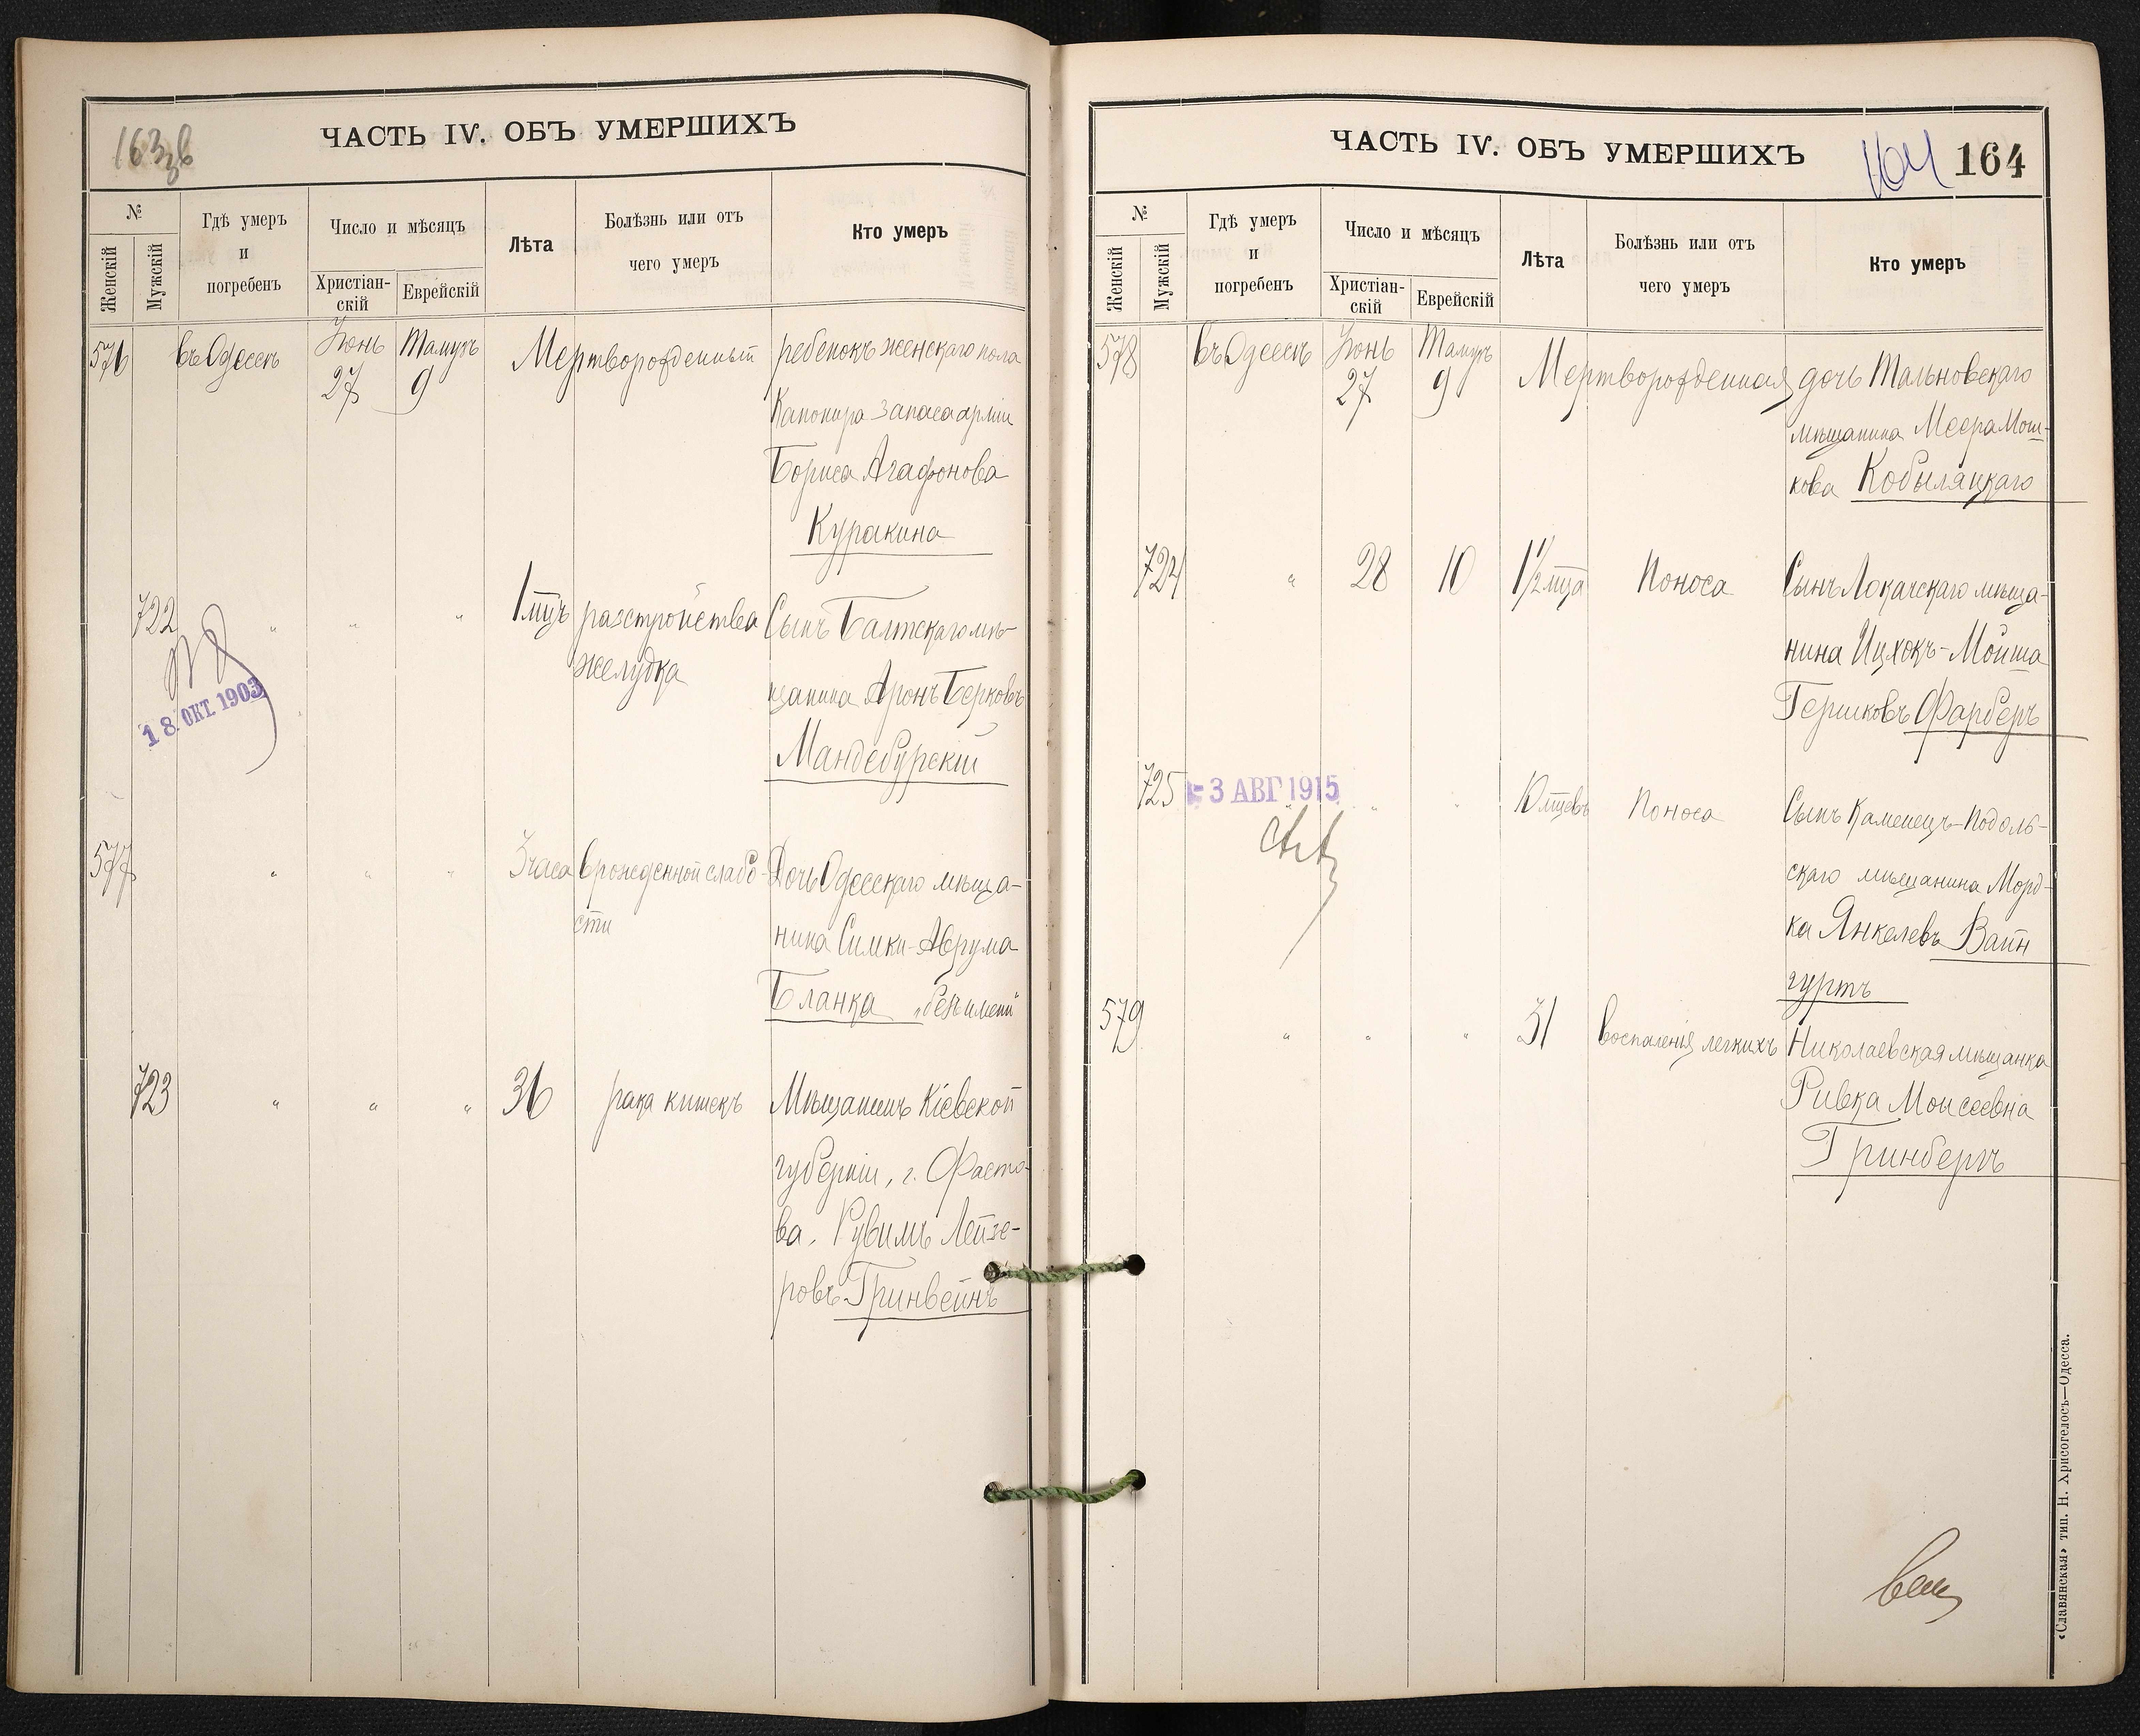 163 зв
ЧАСТЬ IV. ОБЪ УМЕРШИХЪ
№
Женскій
Мужскій
Гдѣ умеръ
и
погребенъ
Число и мѣсяцъ
Христіан-
скій
Еврейскій
Лѣта
Болѣзнь или отъ
чего умеръ
Кто умеръ
576 въ Одессѣ Іюнь 27 Тамузъ 9 Мертворожденный ребенокъ женскаго пола
Канонира запаса арміи
Бориса Агафонова
Куракина
722 " " " 1 мцъ разстройства Сынъ Балтскаго мѣ-
желудка
щанина Аронъ Берковъ
Мандебурскій
18 ОКТ. 1903
577 " " " 3 часа врожденной слабо- Дочь Одесскаго мѣща-
сти
нина Симки-Аврума
Бланка „безъ имени"
723 " " " 36 рака кишекъ Мѣщанинъ Кіевской
губерніи, г. Фасто-
ва. Рувимъ Лейзе-
ровъ Гринвейнъ
ЧАСТЬ IV. ОБЪ УМЕРШИХЪ
164 164
№
Женскій
Мужскій
Гдѣ умеръ
и
погребенъ
Число и мѣсяцъ
Христіан-
скій
Еврейскій
Лѣта
Болѣзнь или отъ
чего умеръ
Кто умеръ
578 въ Одессѣ Іюнь 27 Тамузъ 9 Мертворожденная дочь Тальновскаго
мѣщанина Меера Мош-
кова Кобыляцкаго
724 " 28 10 1 1/2 мца Поноса Сынъ Локачскаго мѣща-
нина Ицхокъ-Мойша
Гершковъ Фарберъ
725 " " " 10 мцевъ Поноса Сынъ Каменецъ-Подоль-
скаго мѣщанина Морд-
ка Янкелевъ Вайн
гуртъ
- 3 АВГ 1915
579 " " " 31 воспаленія легкихъ Николаевская мѣщанка
Ривка Моисеевна
Гринбергъ
«Славянская» тип. Н. Хрисогелосъ—Одесса.